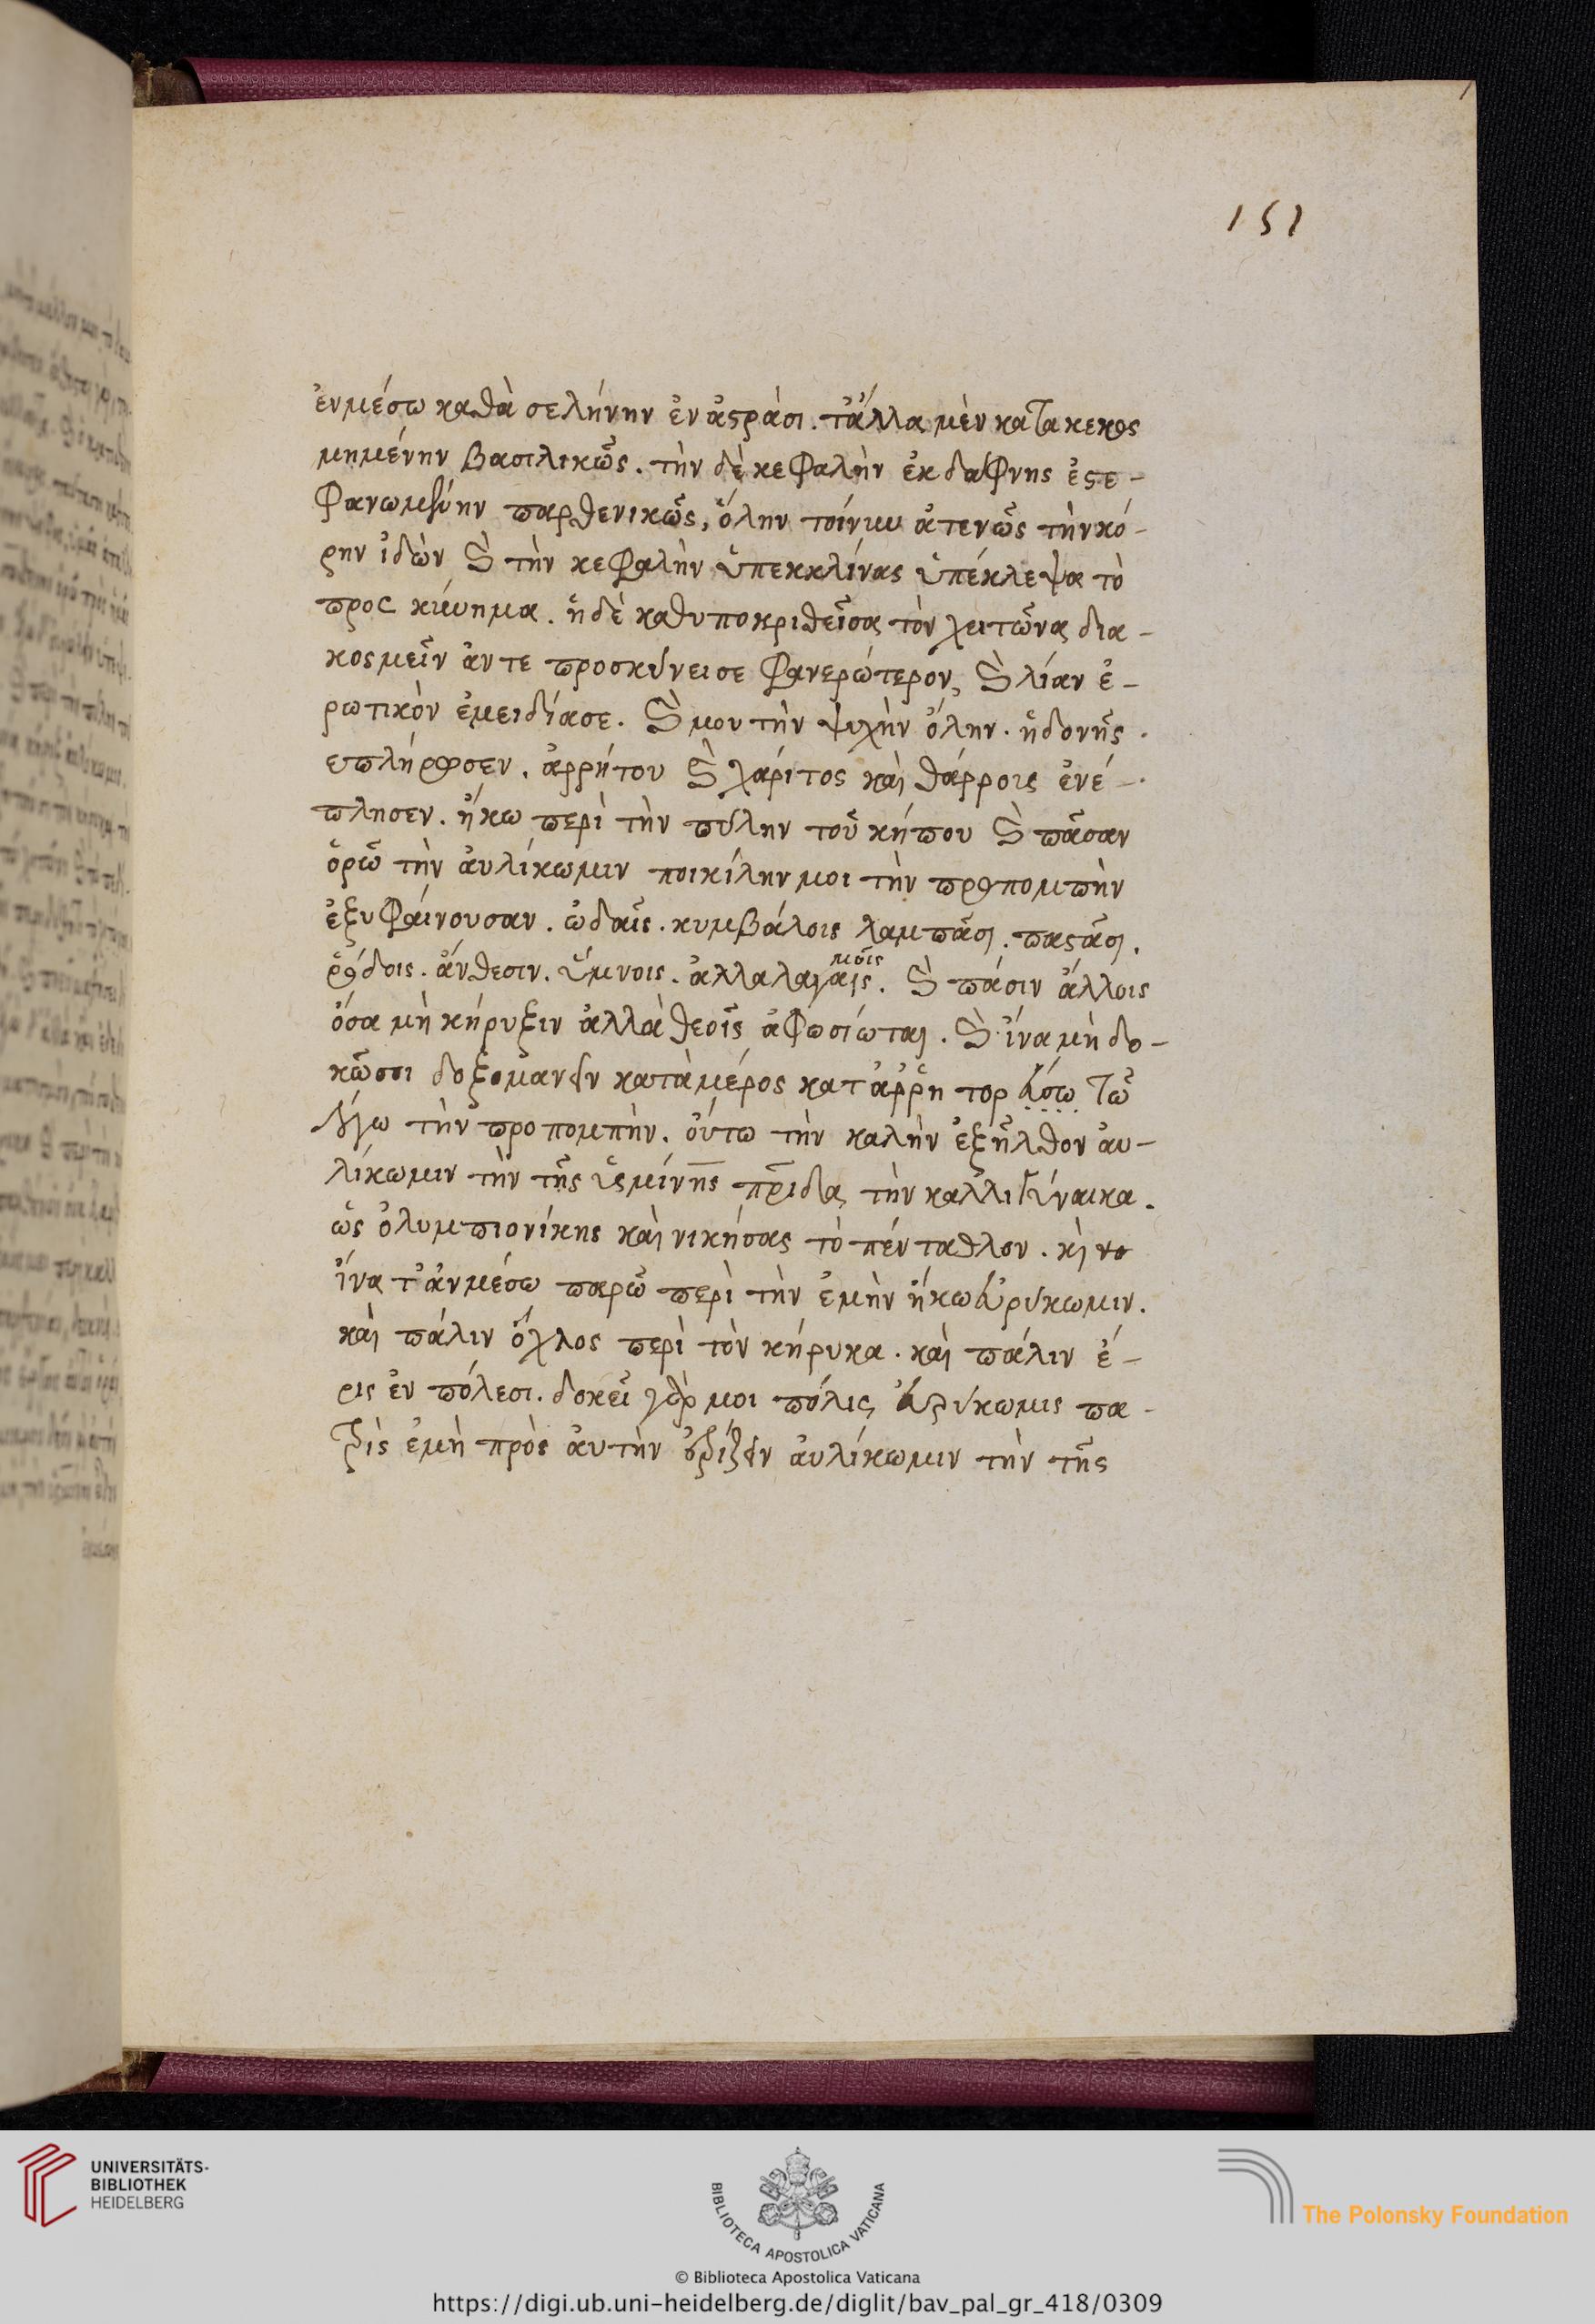 151
ἐν μέσω καθὰ σελήνην ἐν ἄςρασι. τἄλλα μὲν κατακεκος
μημένην βασιλικῶς. τὴν δὲ κεφαλὴν ἐκ δάφνης ἐςε-
φανωμένην παρθενικῶς, ὅλην τοίνυν ἀτενῶς τὴν κό-
ρην ἰδὼν καὶ τὴν κεφαλὴν ὑπεκκλίνας ὑπέκλεψα τὸ
προσκύνημα. ἡ δὲ καθυποκριθεῖσα τὸν χειτῶνα δια-
κοσμεῖν ἀντεπροσκύνεισε φανερώτερον, καὶ λίαν ἐ-
ρωτικὸν ἐμειδίασε. καὶ μου τὴν ψυχὴν ὅλην. ἡδονῆς.
επλήρωσεν. ἀρρήτου καὶ χάριτος καὶ θάρροις ἐνέ-
πλησεν. ἥκω περὶ τὴν πύλην τοῦ κήπου καὶ πᾶσαν
ὁρῶ τὴν ἀυλίκωμιν ποικίλην μοι τὴν προπομπὴν
ἐξυφαίνουσαν. ὠδαῖς. κυμβάλοις λαμπάσι. παςάσι.
ῥόδοις. ἄνθεσιν. ὕμνοις. ἀλλαλαγαῖς. καὶ πάσιν ἄλλοις
μοῖς
ὅσα μὴ κήρυξιν ἀλλὰ θεοῖς ἀφωσίωται. καὶ ἵνα μὴ δο-
κῶσι δοξομανεῖν κατὰ μέρος κατ ἀρρη τορ ἐύσω τῶ
λόγω τὴν προπομπὴν. οὕτω τὴν καλὴν ἐξῆλθον ἀυ-
λίκωμιν τὴν τῆς ὑσμίνης πρίδα, τὴν καλλιγύναικα.
ὡς ὀλυμπιονίκης καὶ νικήσας τὸ πένταθλον. κὶ νο
ἵνα τ' ἀνμέσω παρῶ περὶ τὴν ἐμὴν ἥκω ἐυρύκωμιν.
καὶ πάλιν ὄχλος περὶ τὸν κήρυκα. καὶ πάλιν ἔ-
ρις ἐν πόλεσι. δοκεῖ γάρ μοι πόλις ἐυρύκωμις πα-
τρὶς ἐμὴ πρὸς ἀυτὴν ἐρίζειν ἀυλίκωμιν τὴν τῆς
UNIVERSITÄTS-
BIBLIOTHEK
HEIDELBERG
BIBLIOTECA APOSTOLICA VATICANA
© Biblioteca Apostolica Vaticana
The Polonsky Foundation
https://digi.ub.uni-heidelberg.de/diglit/bav_pal_gr_418/0309